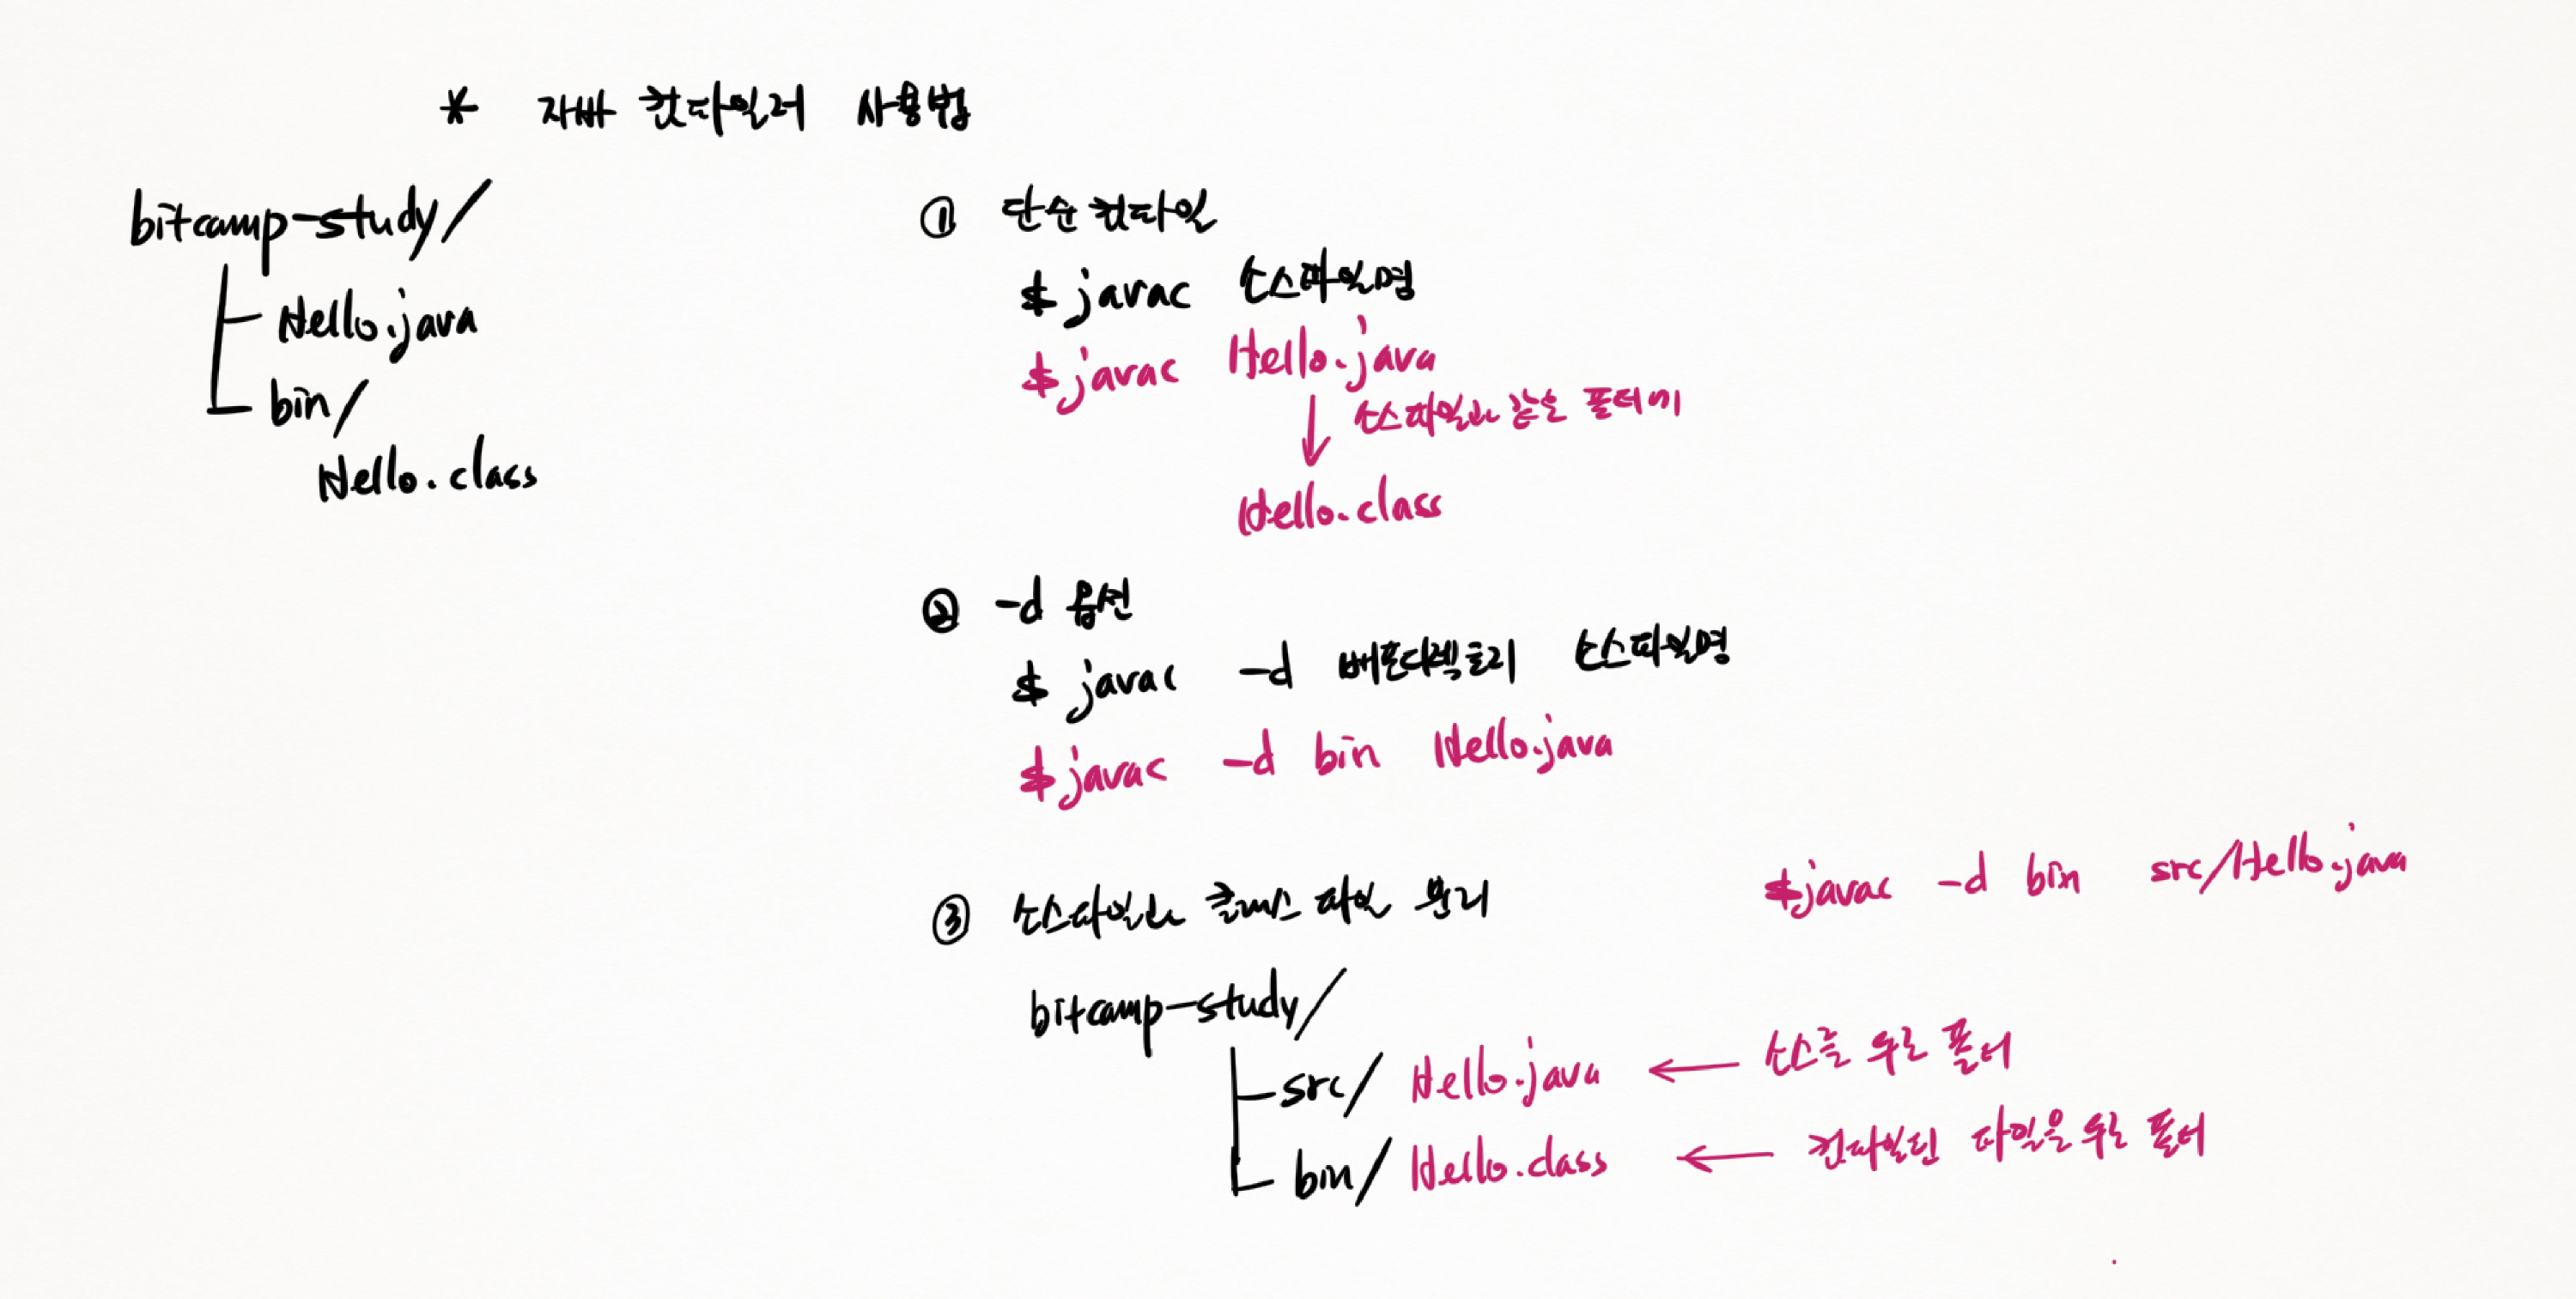 * 자바 컴파일러 사용법
bitcamp-study/
Hello.java
bin/
Hello.class
① 단순 컴파일
$ javac 소스파일명
$ javac Hello.java
소스파일과 같은 폴더에
Hello.class
② -d 옵션
$ javac -d 배포디렉토리 소스파일명
$ javac -d bin Hello.java
③ 소스파일과 클래스 파일 분리
$ javac -d bin src/Hello.java
bitcamp-study/
src/ Hello.java ← 소스를 두는 폴더
bin/ Hello.class ← 컴파일된 파일을 두는 폴더